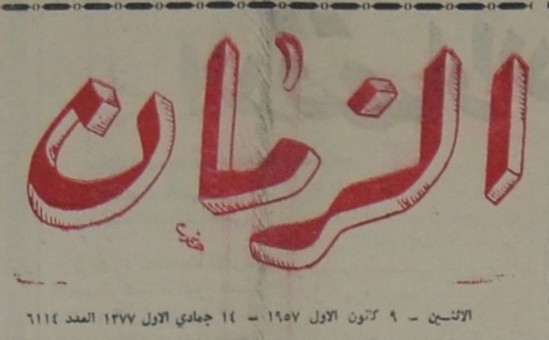 الزمان
الاثنين - ٩ كانون الاول ١٩٥٧ - ١٤ جمادي الاول ١٣٧٧ العدد ٦١١٤